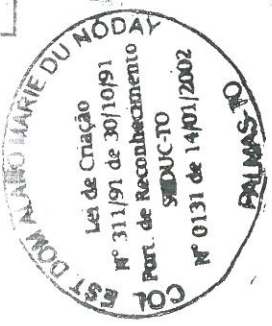 COL EST. DOM ALANO MARIE DU NODAY
Lei de Criação
Nº 311/91 de 30/10/91
Port. de Reconhecimento
SEDUC-TO
Nº 0131 de 14/01/2002
PALMAS-TO